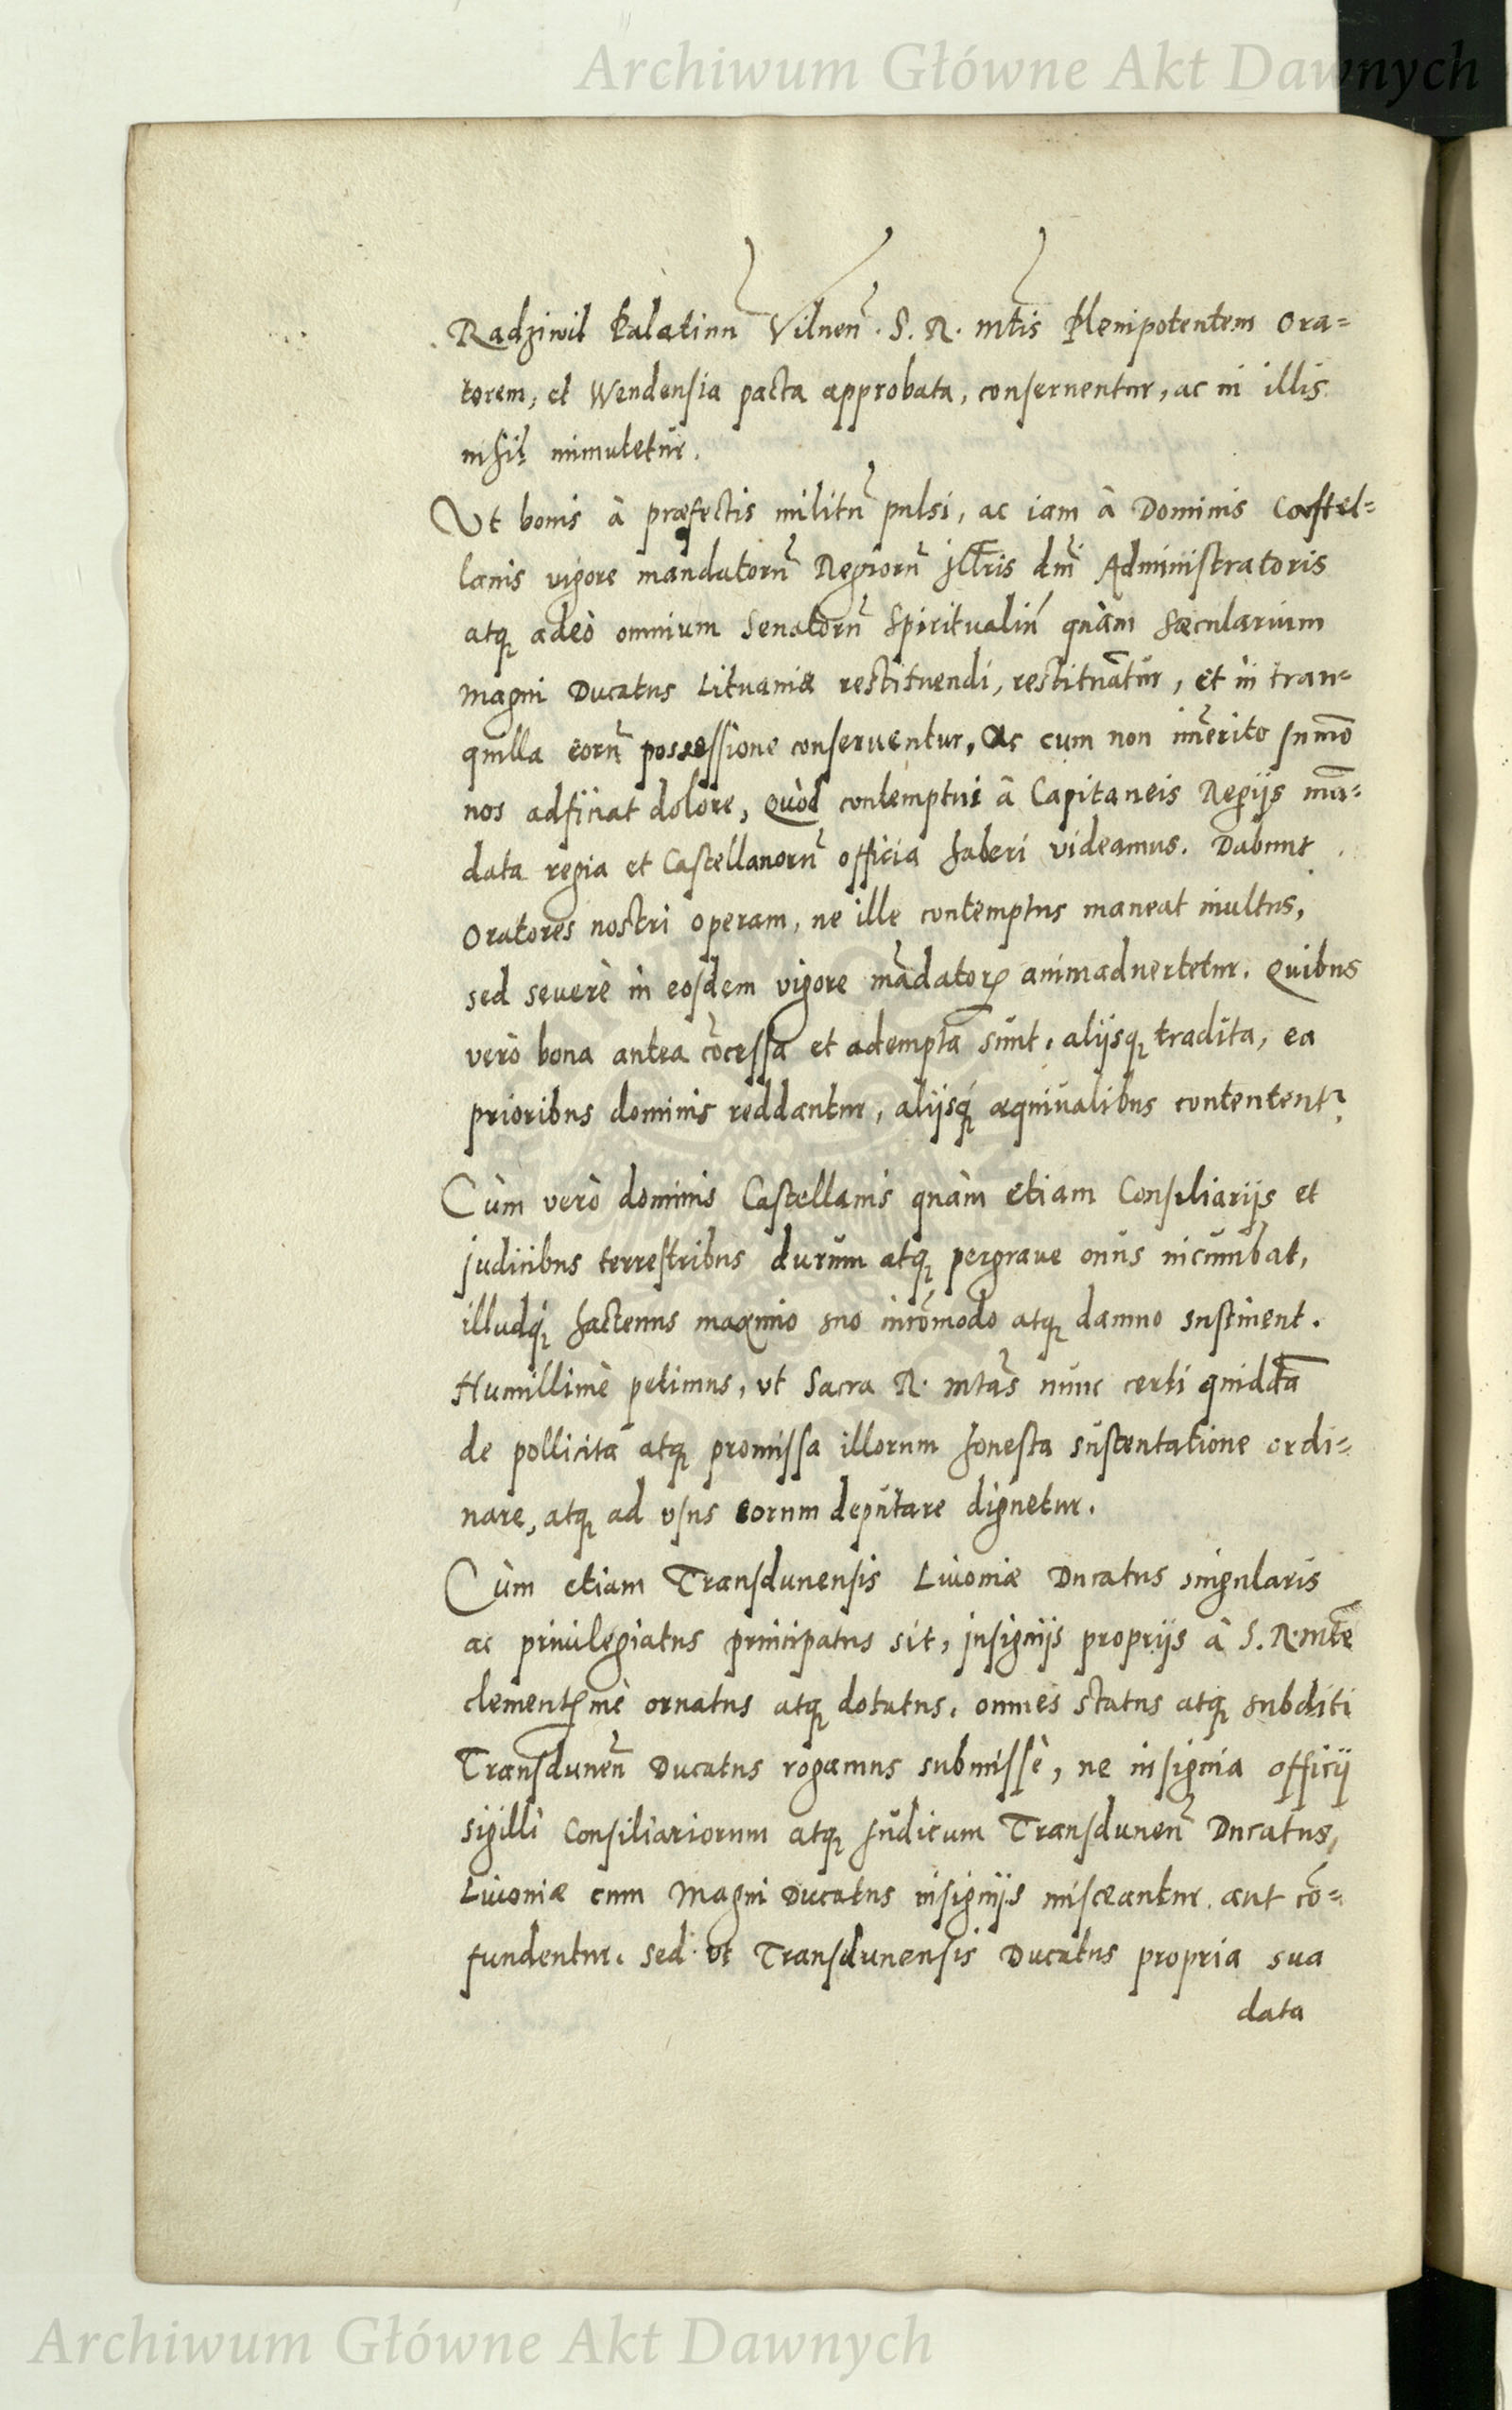 Archiwum Główne Akt Dawnych
Radziwil Palatinū Vilneñ. S. R. Mtis Plenipotentem Ora=
torem, et Wendensia pacta approbata, conseruentur, ac in illis
nihil imminutetur.
Vt bonis à præfectis militū pulsi, ac iam à Dominis Castel=
lanis vigore mandatorū Regiorū Illris dni Administratoris
atq adeò omnium Senatorū Spiritualiū quàm Sæcularium
Magni Ducatus Lituaniæ restituendi, restituātur, et in tran=
quilla eorū possessione conseruentur, Ac cum non imerito sumō
nos adficiat dolore, Quòd contemptui à Capitaneis Regijs mā=
data regia et Castellanorū officia haberi videamus. Dabunt
Oratores nostri operam, ne ille contemptus maneat inultus,
sed seuerè in eosdem vigore mādator animaduertetur. Quibus
verò bona antea cōcessa et adempta sunt, alijsq tradita, ea
prioribus dominis reddantur, alijsq æquiualibus contentent
Cùm verò dominis Castellanis quàm etiam Consiliarijs et
Judicibus terrestribus durum atq pergraue onus incumbat,
illudq hactenus maximo suo incōmodo atq damno sustinent.
Humillimè petimus, vt Sacra R. Mtas nunc certi quiddā
de pollicita atq promissa illorum honesta sustentatione ordi=
nare, atq ad vsus eorum deputare dignetur.
Cùm etiam Transdunensis Liuoniæ Ducatus singularis
ac priuilegiatus principatus sit, insignijs proprijs à S. R. Mte
clementmè ornatus atq dotatus, omnes status atq subditi
Transduneñ Ducatus rogamus submissè, ne insignia officij
sigilli Consiliariorum atq Judicum Transduneñ Ducatus,
Liuoniæ cum Magni Ducatus insignijs misceantur aut cō=
fundentur. sed vt Transdunensis Ducatus propria sua
data
Archiwum Główne Akt Dawnych